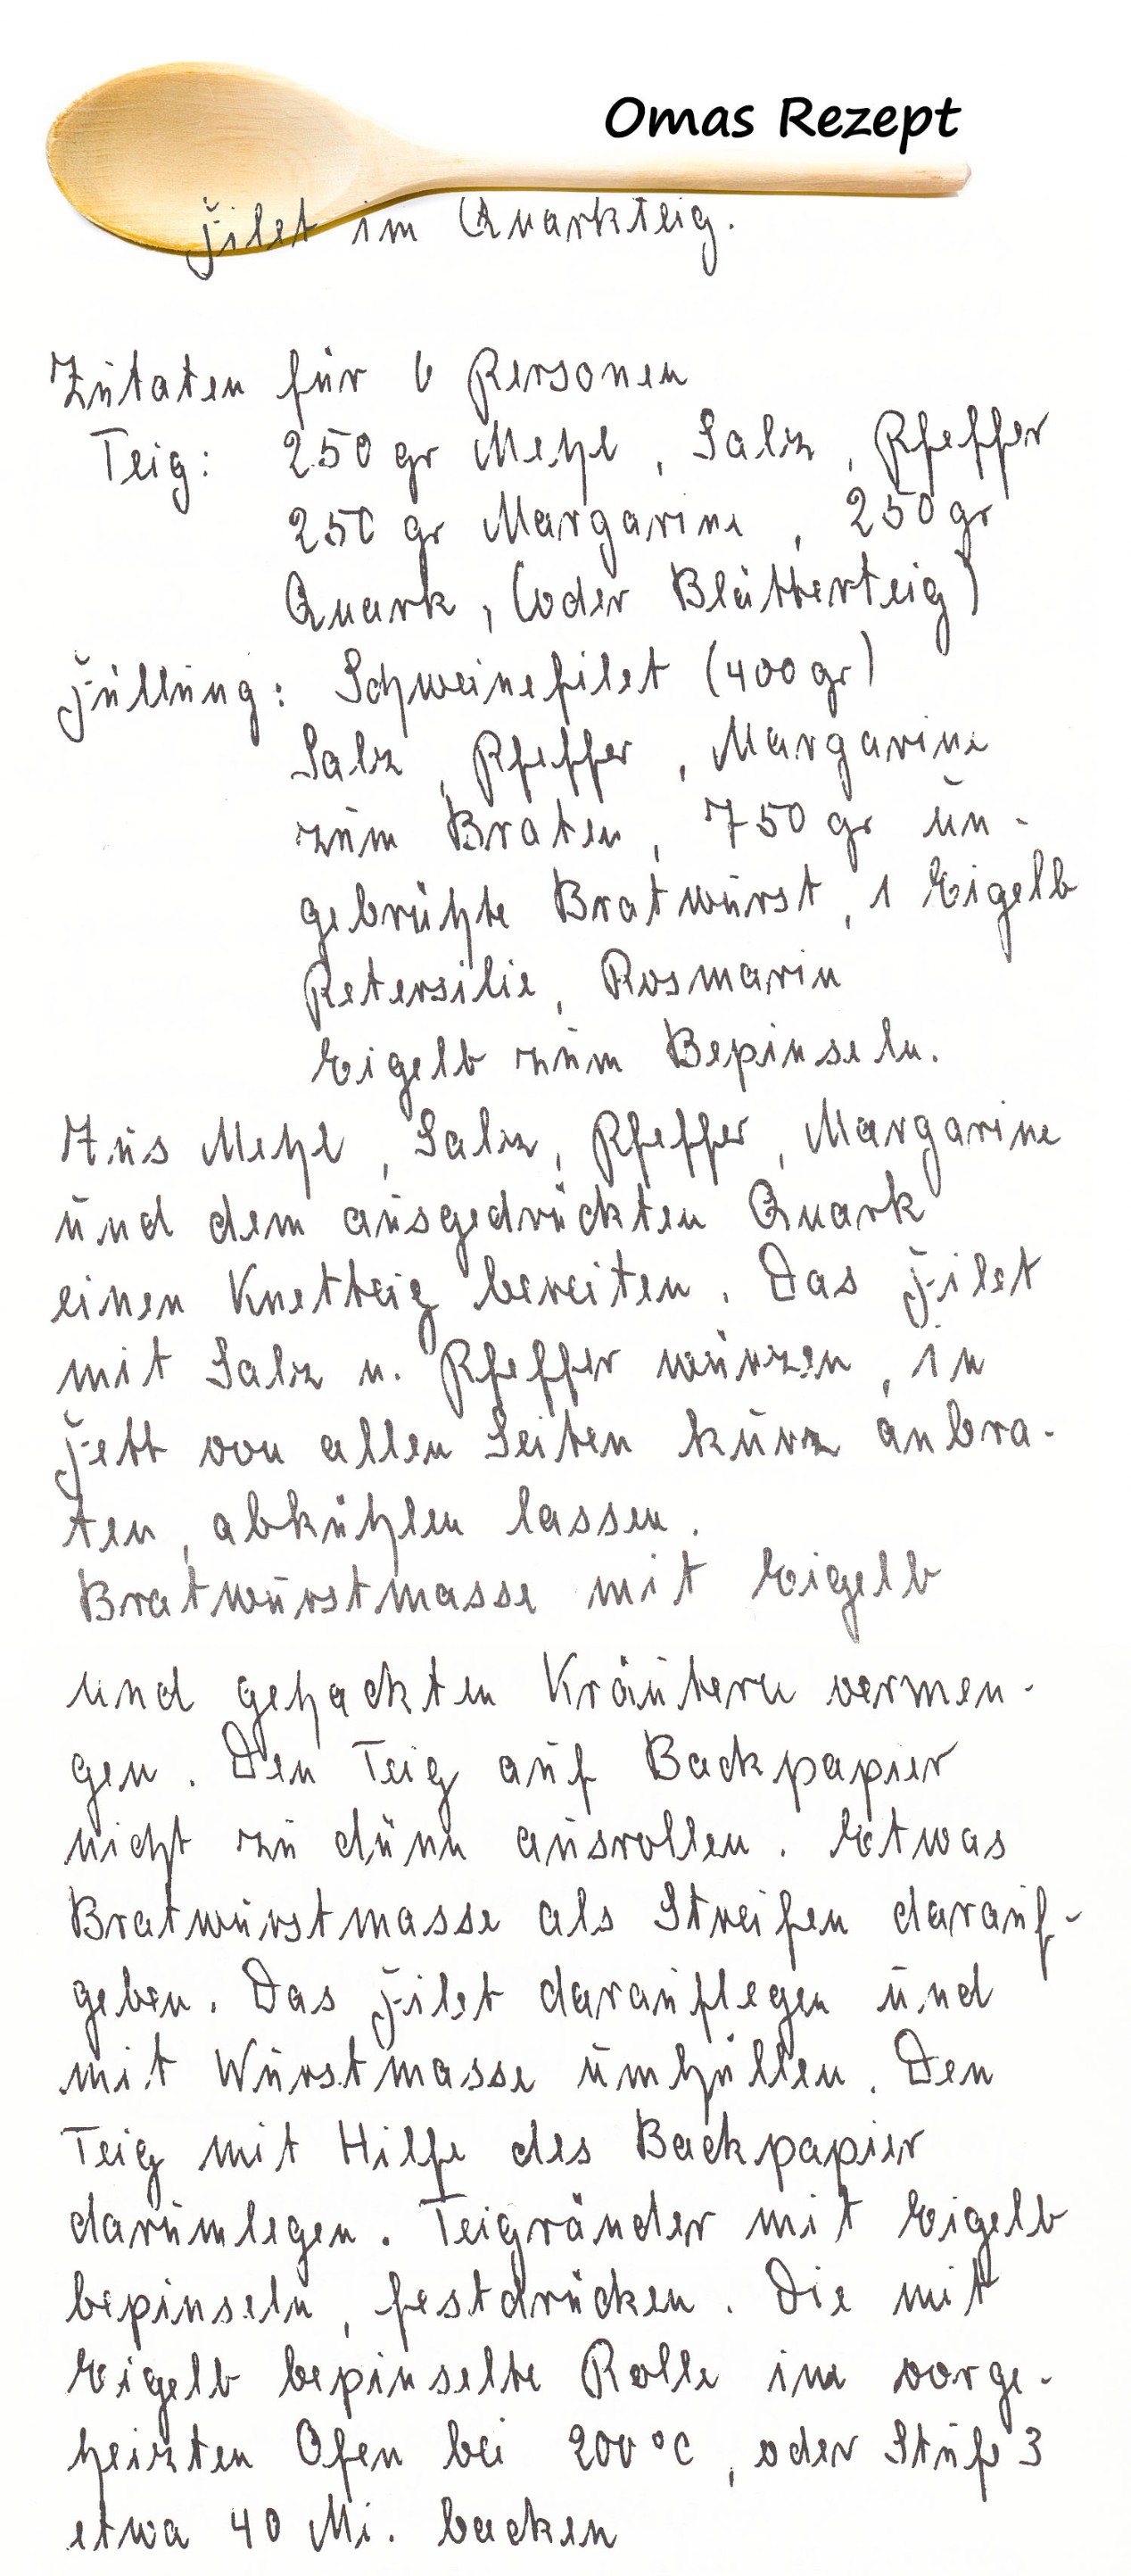 Omas Rezept
Filet im Quarkteig.
Zutaten für 6 Personen
Teig: 250 gr Mehl, Salz, Pfeffer
250 gr Margarine, 250 gr
Quark, (oder Blätterteig)
Füllung: Schweinefilet (400 gr)
Salz, Pfeffer, Margarine
zum Braten, 750 gr un-
gebrühte Bratwurst, 1 Eigelb
Petersilie, Rosmarin
Eigelb zum Bepinseln.
Aus Mehl, Salz, Pfeffer, Margarine
und dem ausgedrückten Quark
einen Knetteig bereiten. Das Filet
mit Salz u. Pfeffer würzen, in
Fett von allen Seiten kurz anbra-
ten, abkühlen lassen.
Bratwurstmasse mit Eigelb
und gehackten Kräutern vermen-
gen. Den Teig auf Backpapier
nicht zu dünn ausrollen. Etwas
Bratwurstmasse als Streifen darauf-
geben. Das Filet darauflegen und
mit Wurstmasse umhüllen. Den
Teig mit Hilfe des Backpapier
darumlegen. Teigränder mit Eigelb
bepinseln, festdrücken. Die mit
Eigelb bepinselte Rolle im vorge-
heizten Ofen bei 200°C, oder Stufe 3
etwa 40 Mi. backen